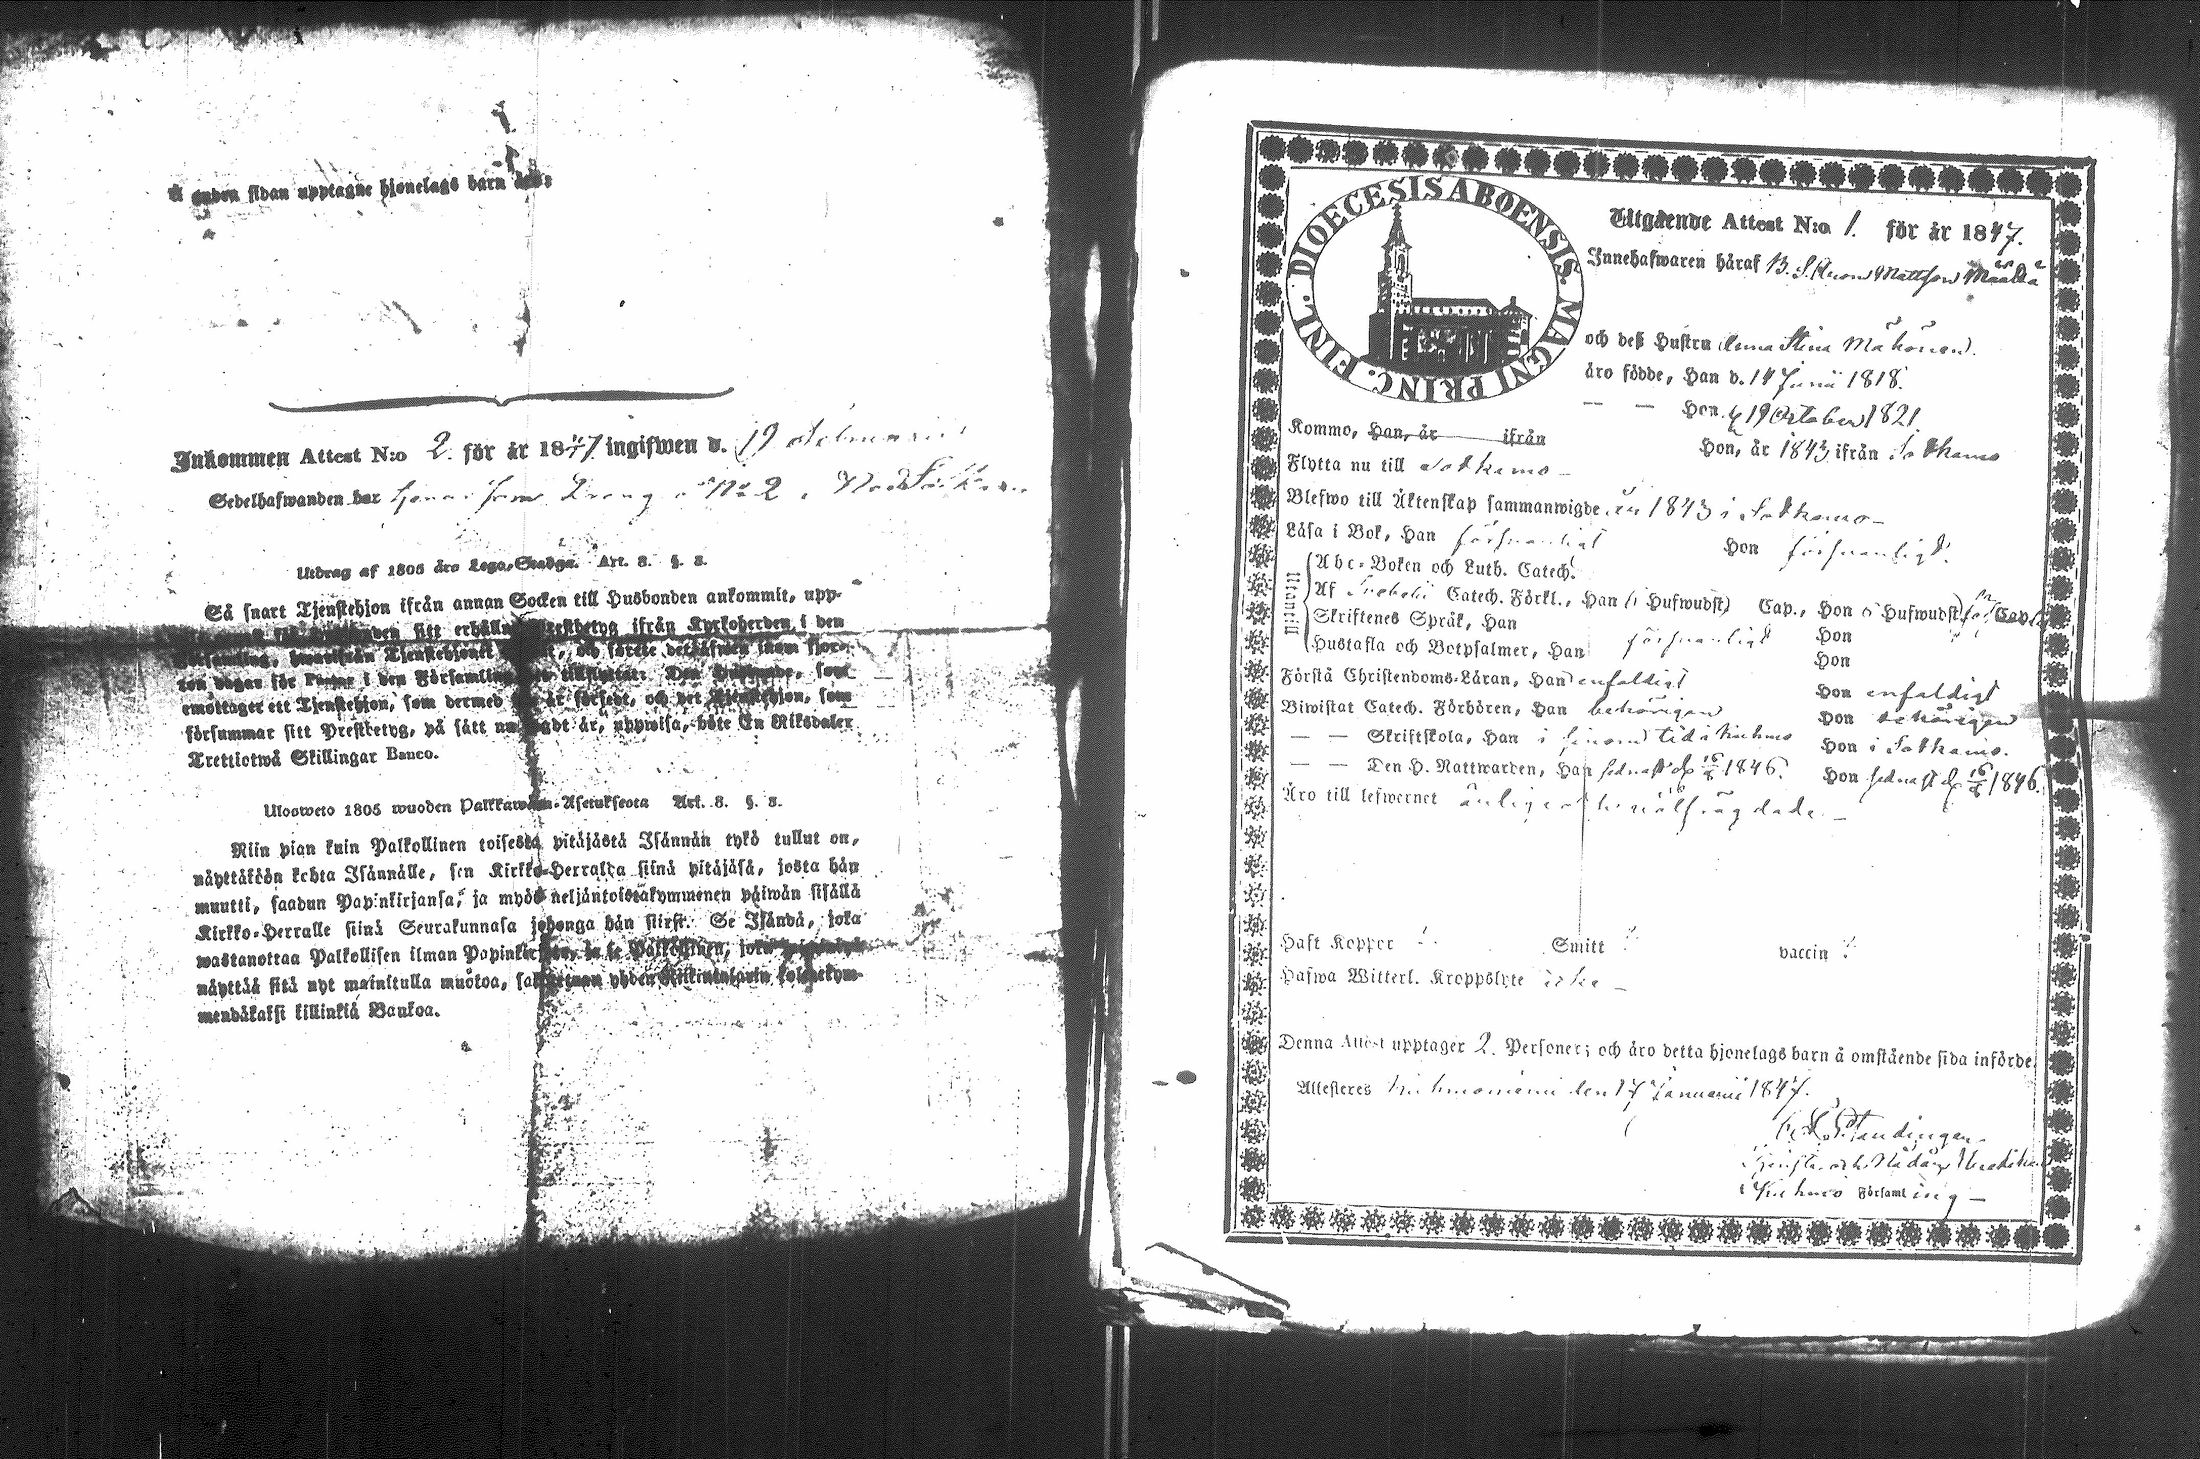 Å andra sidan upptagne hjonelags barn äro:
Inkommen Attest N:o 2. för år 1847 ingifwen d. 19
Sedelhafwanden har N:o 2
Utdrag af 1805 års Lego-Stadga. Art. 8. §. 8.
Så snart Tjenstehjon ifrån annan Socken till Husbonden ankommit, upp-
sitt erhållne Prestbetyg ifrån Kyrkoherden i den
Församling, hwarifrån Tjenstehjonet och förete det äfwen inom fjor-
ton dagar för i den Församling tillflyttat: Den Husbonde, som
emottager ett Tjenstehjon, som dermed är försedt, och det Tjenstehjon, som
försummar sitt Prestbetyg, på sätt nu sagdt är, uppwisa, böte En Riksdaler
Trettiotwå Skillingar Banco.
Ulosweto 1805 wuoden Palkkawäen-Asetuksesta Art. 8. §. 8.
Niin pian kuin Palkollinen toisesta pitäjästä Isännän tykö tullut on,
näyttäköön kohta Isännälle, sen Kirkko-Herralda siinä pitäjäsä, josta hän
muutti, saadun Papinkirjansa, ja myös neljäntoistakymmenen päiwän sisällä
Kirkko-Herralle siinä Seurakunnasa johonga hän siirst. Se Isändä, joka
wastanottaa Palkollisen ilman Papinkirjaa, ja se Palkollinen, joka
näyttää sitä nyt mainitulla muotoa, yhden Riikintalarin kolmekym-
mendäkaksi killinkiä Bankoa.
DIOECESIS ABOENSIS. MAGNI PRINC. FINL.
Utgående Attest N:o 1. för år 1847.
Innehafwaren häraf B. S. Mattsson Määttä
och deß Hustru Anna Stina Mähönen.
äro födde, Han d. 14 Junii 1818.
— — Hon d 19 October 1821.
Kommo, Han, år ifrån Hon, år 1843 ifrån Sotkamo
Flytta nu till Sotkamo —
Blefwo till Äktenskap sammanwigde år 1843 i Sotkamo —
Läsa i Bok, Han försvarligt Hon försvarligt.
Utantill
Abc-Boken och Luth. Catech.
Af Svebelii Catech. Förkl., Han (i Hufwudst) Cap., Hon (i Hufwudst) Cap.
Skriftenes Språk, Han Hon
Hustafla och Botpsalmer, Han försvarligt Hon
Förstå Christendoms-Läran, Han enfaldigt Hon enfaldigt
Biwistat Catech. Förhören, Han behörigen Hon behörigen
— — Skriftskola, Han i sinom tid i Kuhmo Hon i Sotkamo.
— — Den H. Nattwarden, Han sednast d. 1846. Hon sednast d. 1846.
Äro till lefwernet ärlige och wälfrägdade. —
Haft Koppor Smitt vaccin
Hafwa Witterl. Kroppslyte icke —
Denna Attest upptager 2. Personer; och äro detta hjonelags barn å omstående sida införde.
Attesteras Kuhmoniemi den 17 Januarii 1847.
Kuhmo Församling —